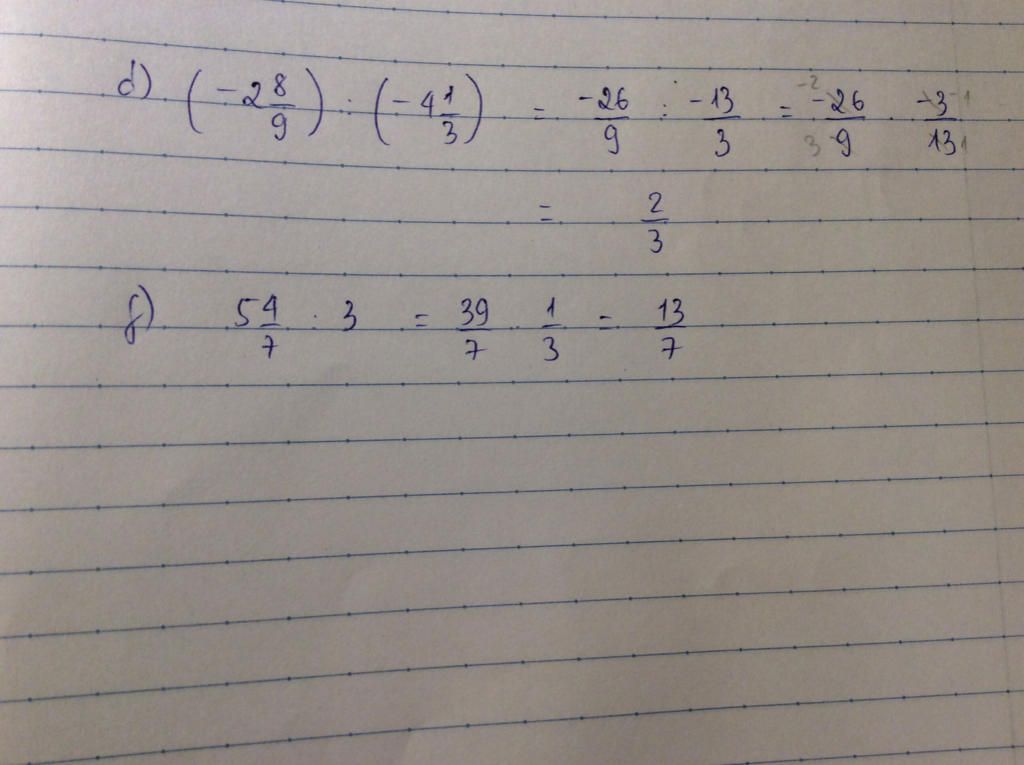 d) (-2 8/9) : (-4 1/3) = -26/9 : -13/3 = -26/9 -2 3 . -3/13 -1 1
= 2/3
f) 5 4/7 : 3 = 39/7 . 1/3 = 13/7